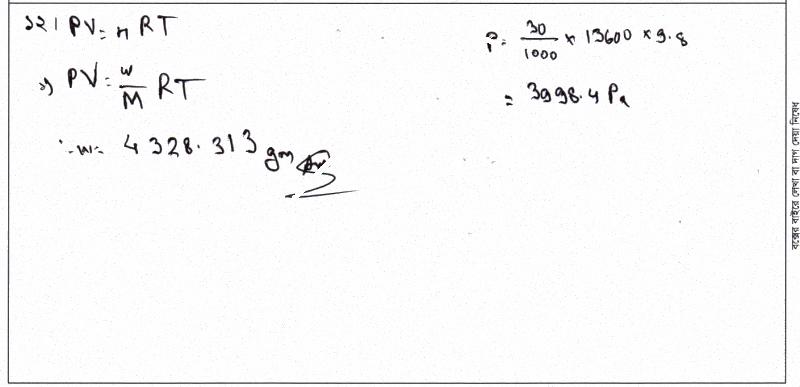 ১২। PV = n RT
⇒ PV = w/M RT
∴ w = 4328.313 gm
P = 30/1000 × 13600 × 9.8
= 3998.4 Pa
বক্সের বাইরে লেখা বা দাগ দেয়া নিষেধ